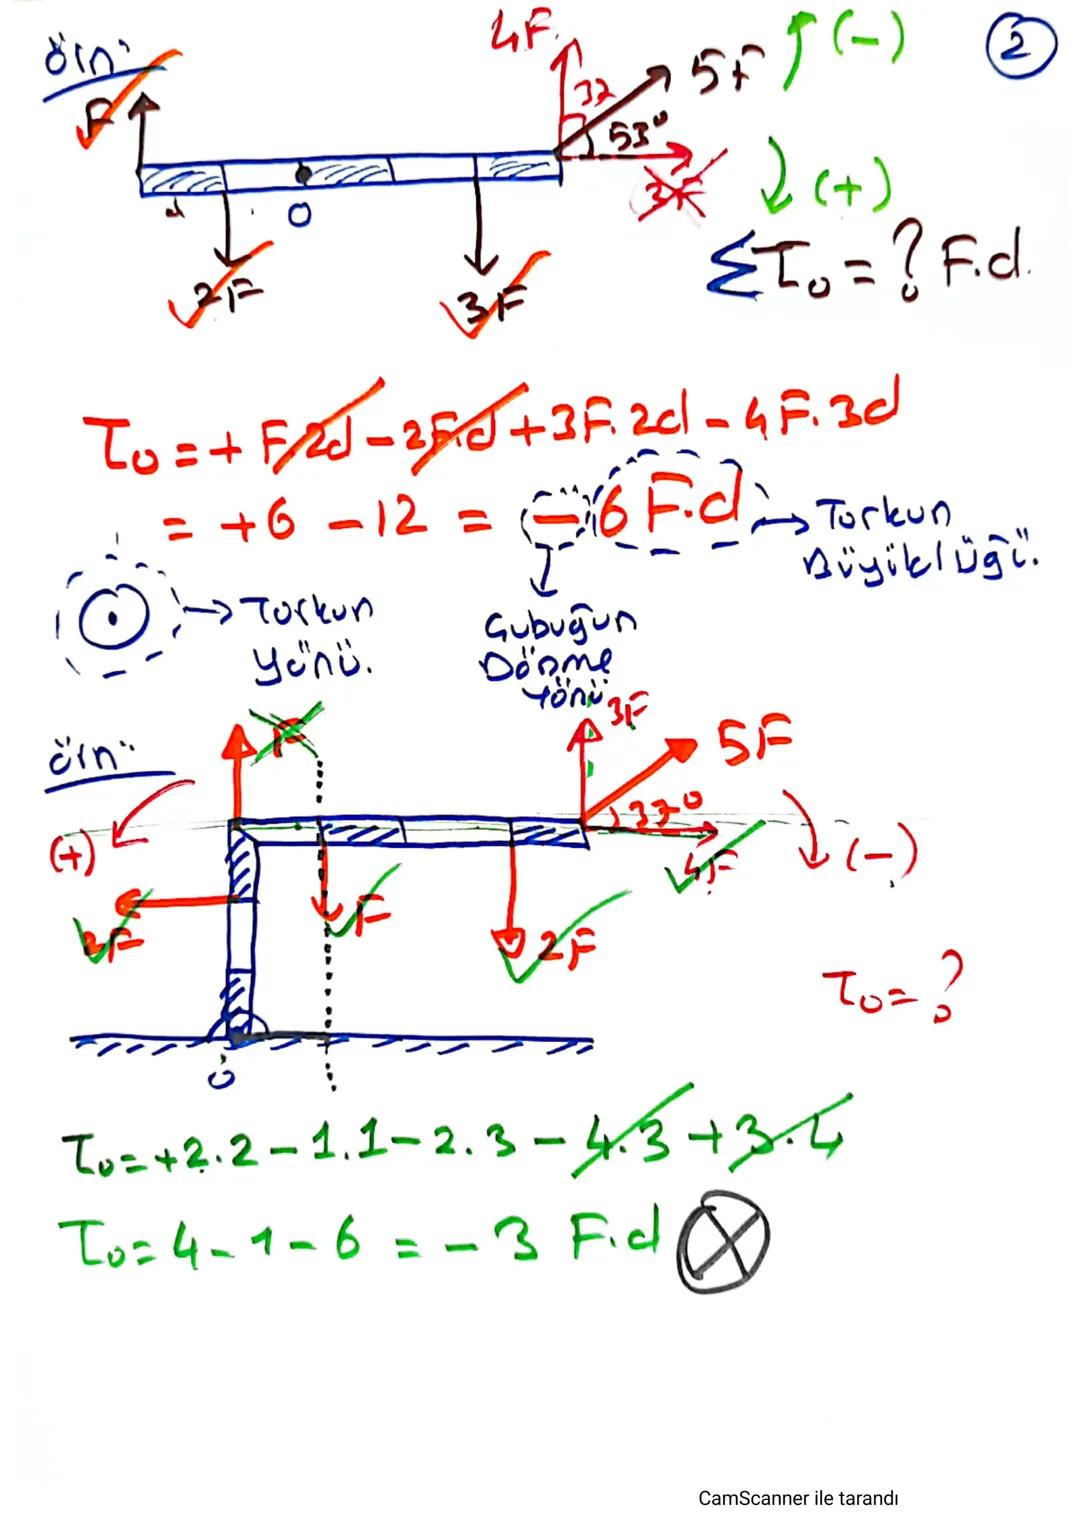 örn:
4F
5F
(-)
2
F
37
53°
3F
(+)
d
O
2F
3F
ΣΤo = ? F.d.
To = + F.2d - 2F.d + 3F.2d - 4F.3d
= +6 - 12 = - 6 F.d → Torkun
Büyüklüğü.
→ Torkun
yönü.
Çubuğun
Dönme
Yönü
örn:
F
3F
5F
37°
(+)
4F
(-)
2F
F
2F
To = ?
O
To = +2.2 - 1.1 - 2.3 - 4.3 + 3.4
To = 4 - 1 - 6 = - 3 F.d
CamScanner ile tarandı